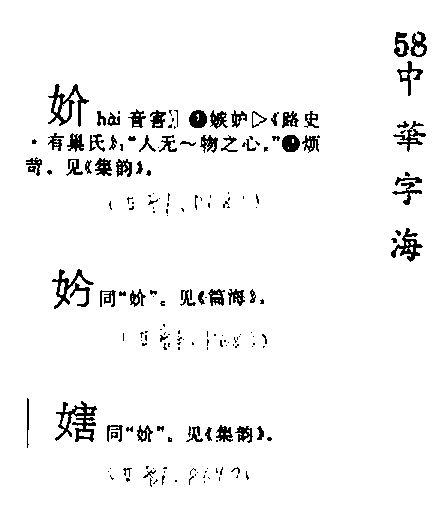 58
中華字海
妎 hài 音害〗❶嫉妒▷《路史
·有巢氏》:“人无～物之心。”❷烦
苛。见《集韵》。
同“妎”。见《篇海》。
同“妎”。见《集韵》。